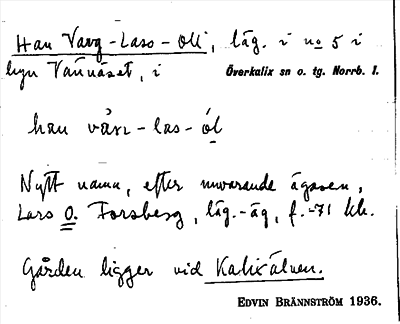 Han Varg-Lass-Oll, läg. i no 5 i
byn Vännäset, i Överkalix sn o. tg. Norrb. l.
han vàrı-las-ól
Nytt namn, efter nuvarande ägaren,
Lars O. Forsberg, läg.-äg, f.-71 kk.
Gården ligger vid Kalixälven.
EDVIN BRÄNNSTRÖM 1936.